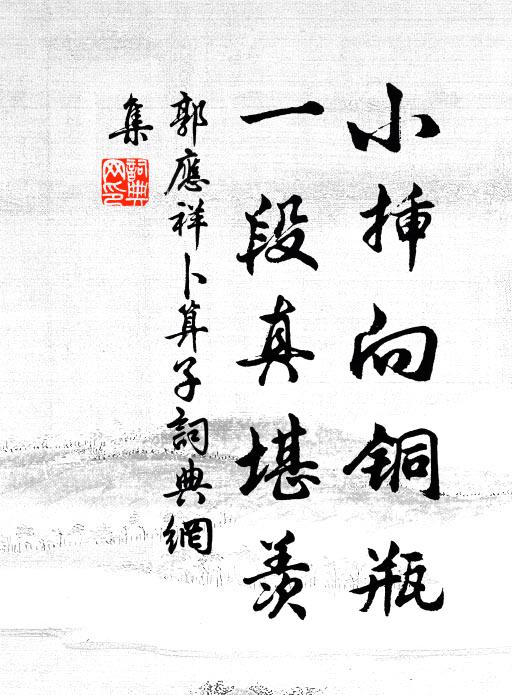 小挿向铜瓶
一段真堪羨
郭應祥卜算子詞典網
集
詞典
网印